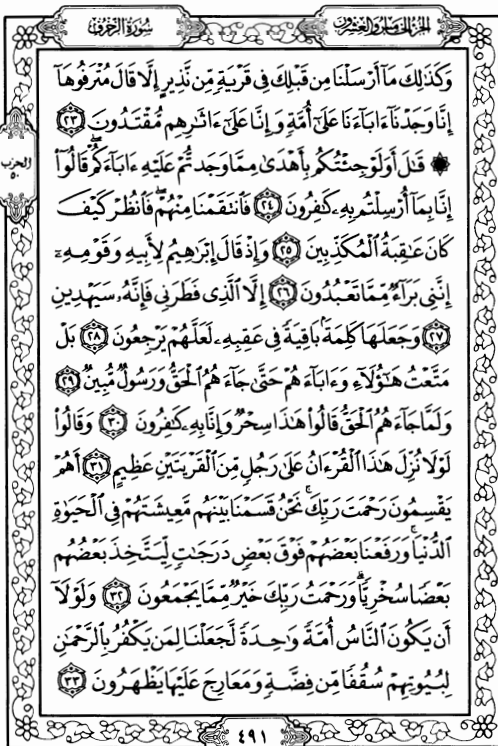 سُورَةُ الزُّخْرُفِ
الجُزْءُ الخَامِسُ وَالعِشْرُونَ
وَكَذَٰلِكَ مَآ أَرْسَلْنَا مِن قَبْلِكَ فِى قَرْيَةٍ مِّن نَّذِيرٍ إِلَّا قَالَ مُتْرَفُوهَآ
إِنَّا وَجَدْنَآ ءَابَآءَنَا عَلَىٰٓ أُمَّةٍ وَإِنَّا عَلَىٰٓ ءَاثَٰرِهِم مُّقْتَدُونَ ٢٣
۞ قَٰلَ أَوَلَوْ جِئْتُكُم بِأَهْدَىٰ مِمَّا وَجَدتُّمْ عَلَيْهِ ءَابَآءَكُمْ ۖ قَالُوٓا۟
إِنَّا بِمَآ أُرْسِلْتُم بِهِۦ كَٰفِرُونَ ٢٤ فَٱنتَقَمْنَا مِنْهُمْ ۖ فَٱنظُرْ كَيْفَ
كَانَ عَٰقِبَةُ ٱلْمُكَذِّبِينَ ٢٥ وَإِذْ قَالَ إِبْرَٰهِيمُ لِأَبِيهِ وَقَوْمِهِۦٓ
إِنَّنِى بَرَآءٌ مِّمَّا تَعْبُدُونَ ٢٦ إِلَّا ٱلَّذِى فَطَرَنِى فَإِنَّهُۥ سَيَهْدِينِ
٢٧ وَجَعَلَهَا كَلِمَةًۢ بَاقِيَةً فِى عَقِبِهِۦ لَعَلَّهُمْ يَرْجِعُونَ ٢٨ بَلْ
مَتَّعْتُ هَٰٓؤُلَآءِ وَءَابَآءَهُمْ حَتَّىٰ جَآءَهُمُ ٱلْحَقُّ وَرَسُولٌ مُّبِينٌ ٢٩
وَلَمَّا جَآءَهُمُ ٱلْحَقُّ قَالُوا۟ هَٰذَا سِحْرٌ وَإِنَّا بِهِۦ كَٰفِرُونَ ٣٠ وَقَالُوا۟
لَوْلَا نُزِّلَ هَٰذَا ٱلْقُرْءَانُ عَلَىٰ رَجُلٍ مِّنَ ٱلْقَرْيَتَيْنِ عَظِيمٍ ٣١ أَهُمْ
يَقْسِمُونَ رَحْمَتَ رَبِّكَ ۚ نَحْنُ قَسَمْنَا بَيْنَهُم مَّعِيشَتَهُمْ فِى ٱلْحَيَوٰةِ
ٱلدُّنْيَا ۚ وَرَفَعْنَا بَعْضَهُمْ فَوْقَ بَعْضٍ دَرَجَٰتٍ لِّيَتَّخِذَ بَعْضُهُم
بَعْضًا سُخْرِيًّا ۗ وَرَحْمَتُ رَبِّكَ خَيْرٌ مِّمَّا يَجْمَعُونَ ٣٢ وَلَوْلَآ
أَن يَكُونَ ٱلنَّاسُ أُمَّةً وَٰحِدَةً لَّجَعَلْنَا لِمَن يَكْفُرُ بِٱلرَّحْمَٰنِ
لِبُيُوتِهِمْ سُقُفًا مِّن فِضَّةٍ وَمَعَارِجَ عَلَيْهَا يَظْهَرُونَ ٣٣
الحزب
٥٠
٤٩١